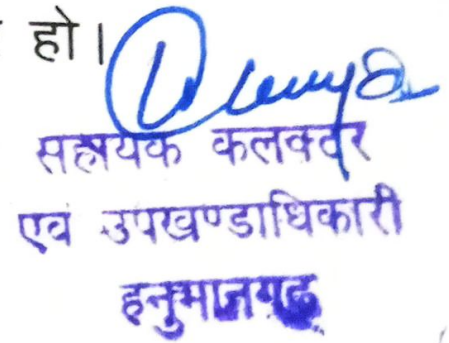 हो।
सहायक कलक्टर
एवं उपखण्डाधिकारी
हनुमानगढ़